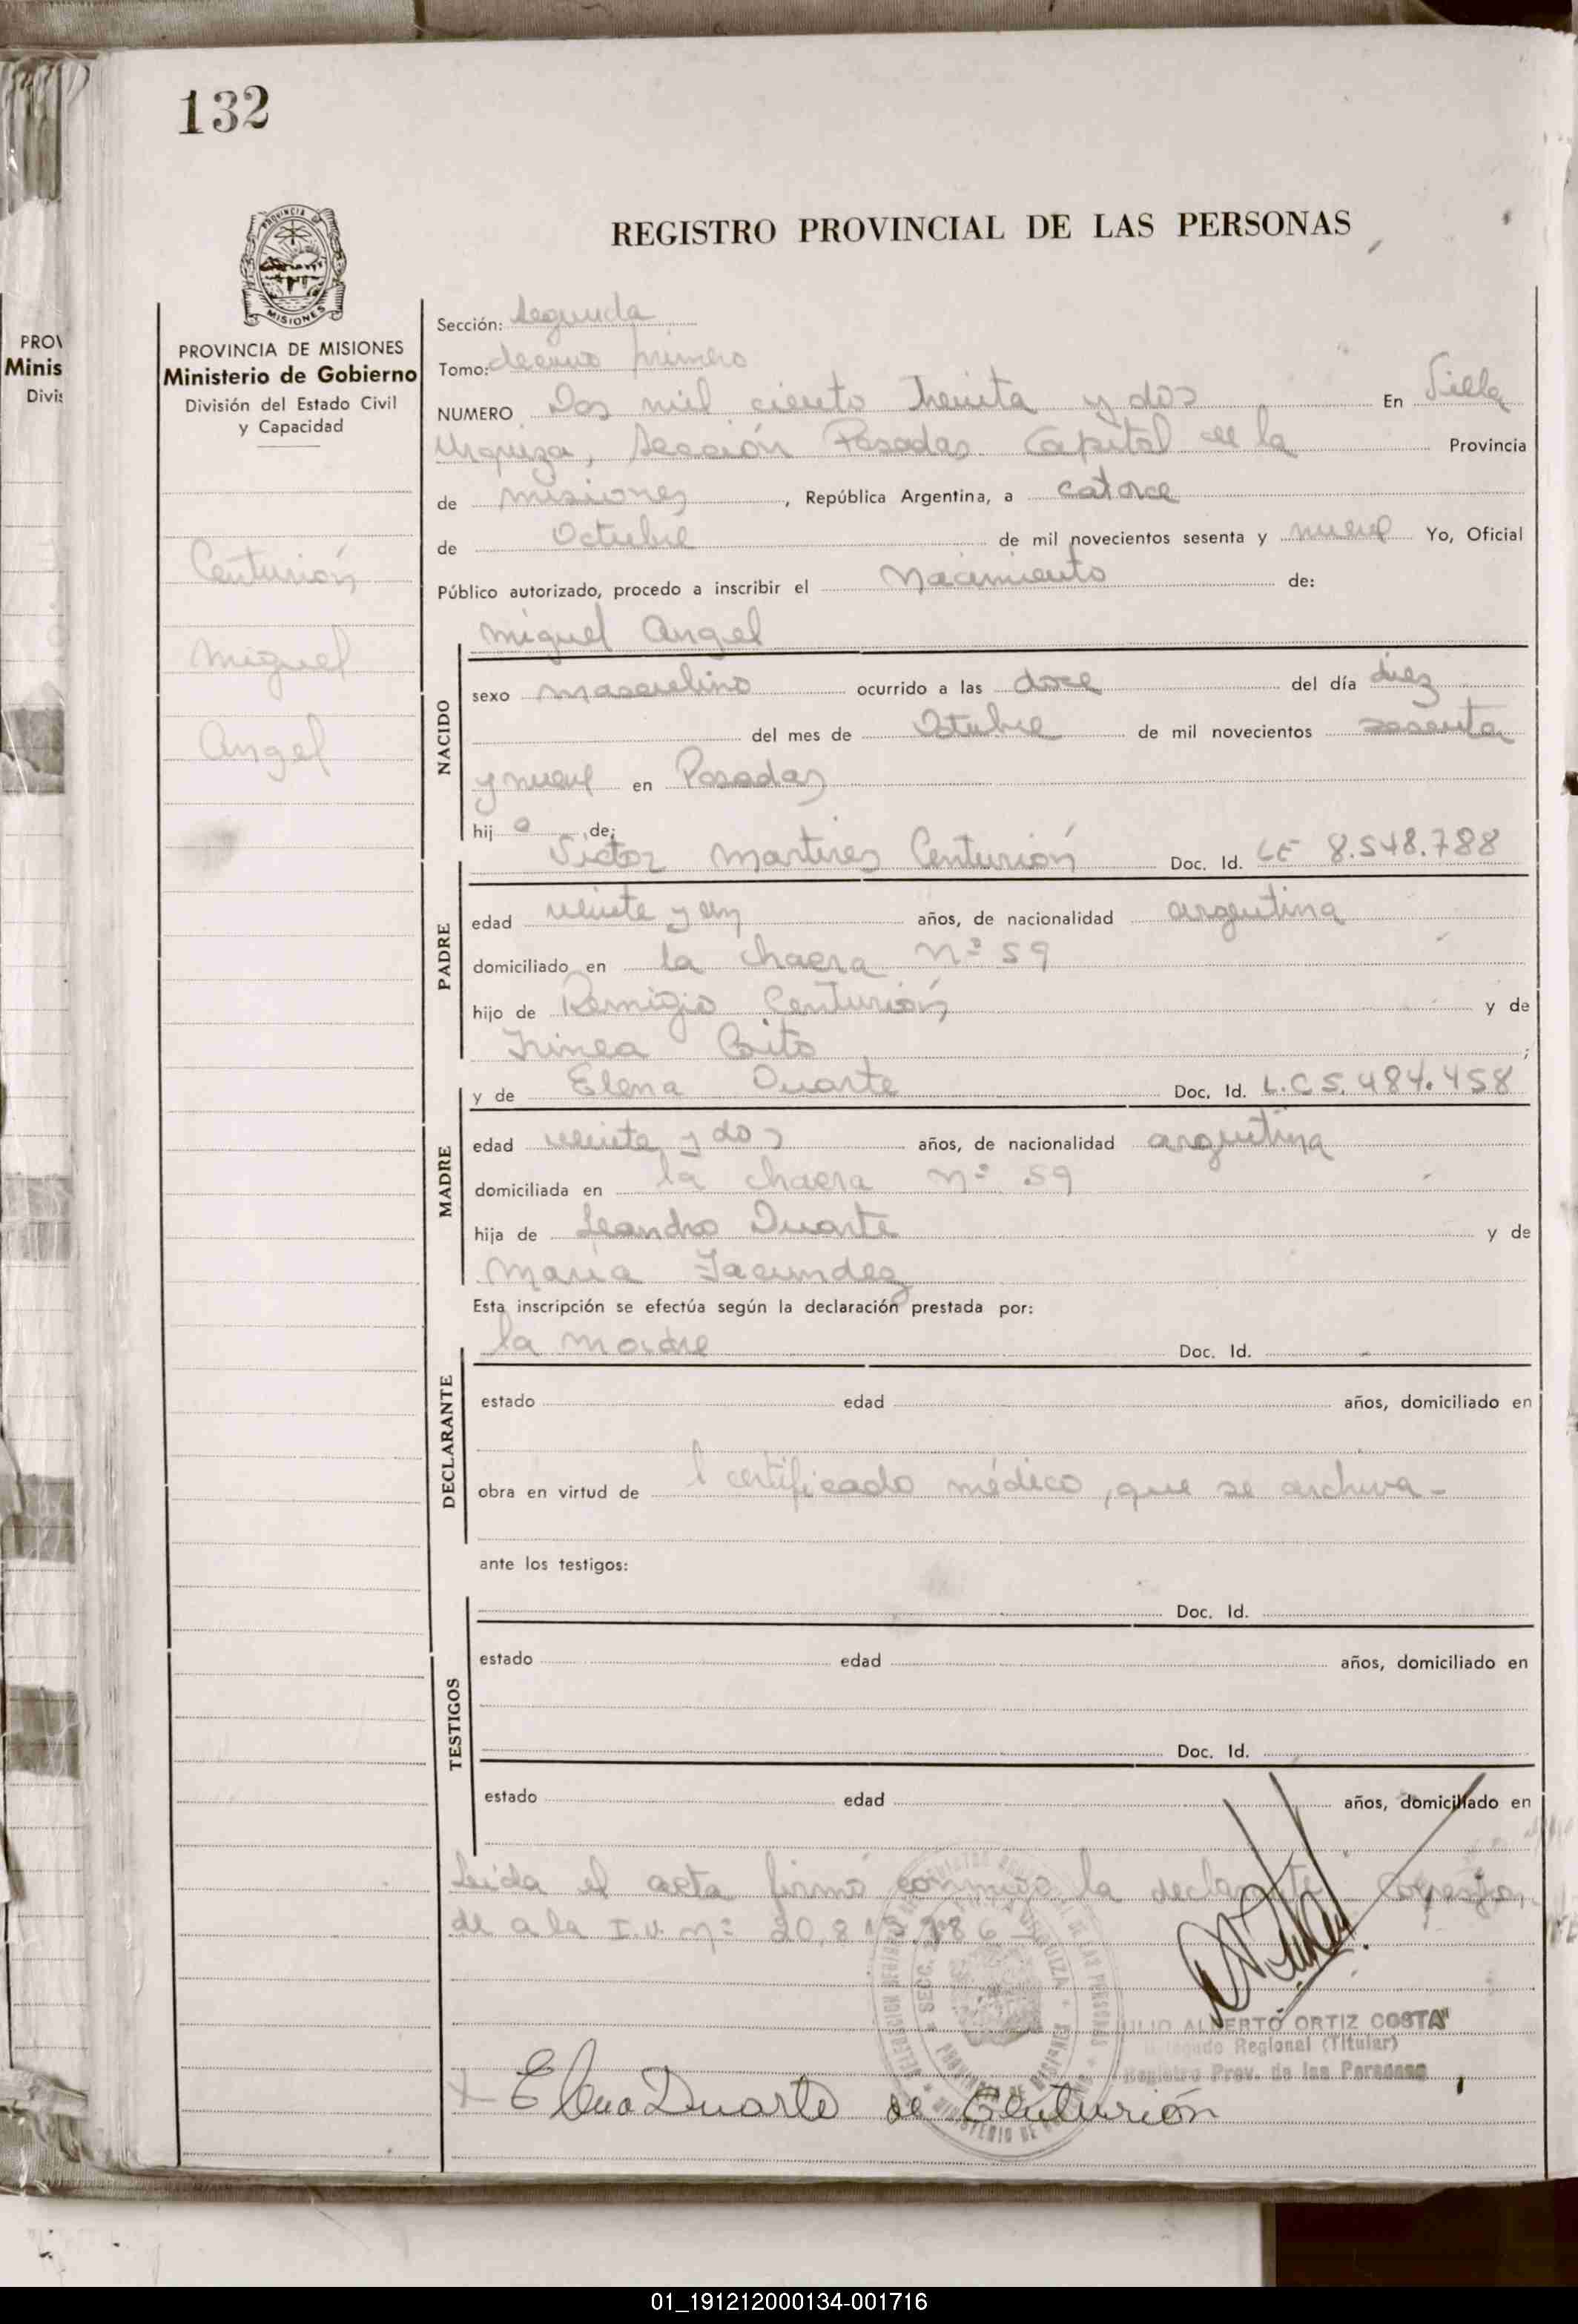 132
REGISTRO PROVINCIAL DE LAS PERSONAS
PROVINCIA DE
MISIONES
PROVINCIA DE MISIONES
Ministerio de Gobierno
División del Estado Civil
y Capacidad
PROV
Minis
Divis
Centurión
Miguel
Angel
Sección: Segunda
Tomo: decimo primero
NUMERO Dos mil ciento Treinta y dos En Villa
Urquiza, Sección Posadas Capital de la Provincia
de misiones, República Argentina, a catorce
de Octubre de mil novecientos sesenta y nueve Yo, Oficial
Público autorizado, procedo a inscribir el Nacimiento de:
Miguel Angel
NACIDO
sexo masculino ocurrido a las doce del día diez
del mes de Otubre de mil novecientos sesenta
y nueve en Posadas
hij o de:
Victor Martires Centurión Doc. Id. LE 8.548.788
PADRE
edad veinte y un años, de nacionalidad argentina
domiciliado en la chacra Nº 59
hijo de Remigio Centurión y de
Irinea Brito;
y de Elena Duarte Doc. Id. L.C 5.484.458
MADRE
edad veinte y dos años, de nacionalidad argentina
domiciliada en la chacra nº 59
hija de Leandro Duarte y de
Maria Facundez
Esta inscripción se efectúa según la declaración prestada por:
la madre Doc. Id.
DECLARANTE
estado edad años, domiciliado en
obra en virtud de l certificado médico, que se archiva -
ante los testigos:
Doc. Id.
TESTIGOS
estado edad años, domiciliado en
Doc. Id.
estado edad años, domiciliado en
Leida el acta firmó conmigo la declarante Correspon
de a la I.U. nº 20.8
ULIO ALBERTO ORTIZ COSTA
Delegado Regional (Titular)
Registro Prov. de las Personas
Elena Duarte de Centurión
01_191212000134-001716